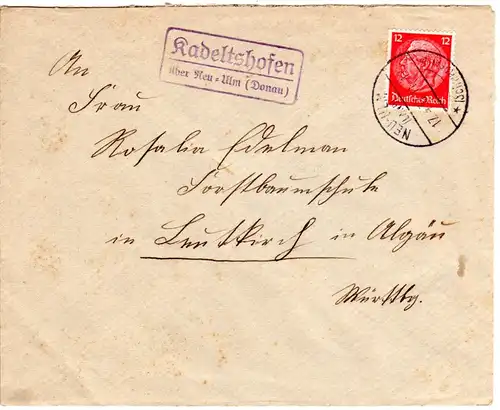 Kadeltshofen
über Neu-Ulm (Donau)
12 12
Deutsches Reich
NEU-ULM
17
An
Frau
Rosalia Edelman
Forstbaumschule
in Leutkirch in Algäu
Württbg.